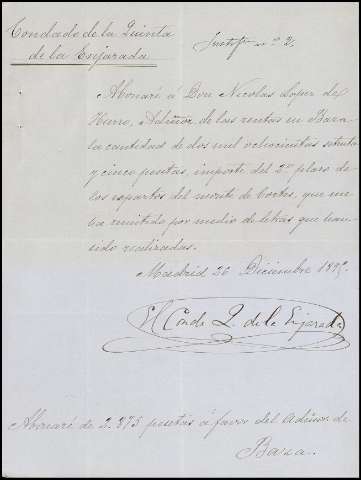 Condado de la Quinta
de la Enjarada
Justifte nº 2.
Abonaré á Don Nicolas Lopez de
Hierro, Admor de las rentas en Baza
la cantidad de dos mil ochocientas setenta
y cinco pesetas, importe del 2º plazo de
los espartos del monte de Cortes, que me
ha remitido por medio de letras que han
sido realizadas.
Madrid 26 Diciembre
El Conde Q. de la Enjarada
Abonaré de 2.875 pesetas á favor del Admor de
Baza.